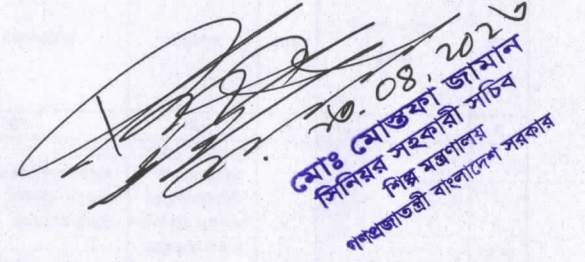 20.08.2026
মোঃ মোস্তফা জামান
সিনিয়র সহকারী সচিব
শিল্প মন্ত্রণালয়
গণপ্রজাতন্ত্রী বাংলাদেশ সরকার